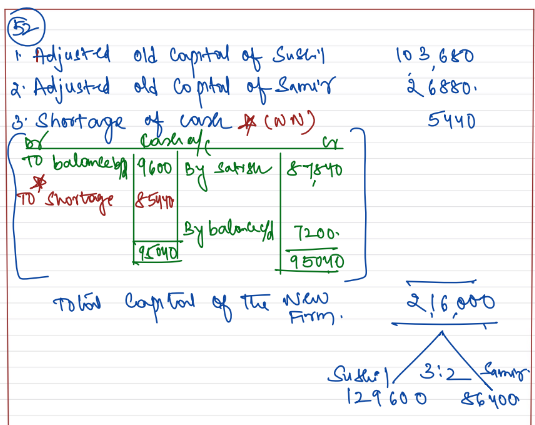 52
1. Adjusted old capital of Sushil 103,680
2. Adjusted old capital of Samir 26880.
3. Shortage of cash * (WN) 5440
Dr Cash a/c Cr
To balance b/d 9600 By Satish 87,840
*
To Shortage 85440
By balance c/d 7200.
95040 95040
Total Capital of the New Firm. 2,16,000
Sushil 3:2 Samir
129600 86400